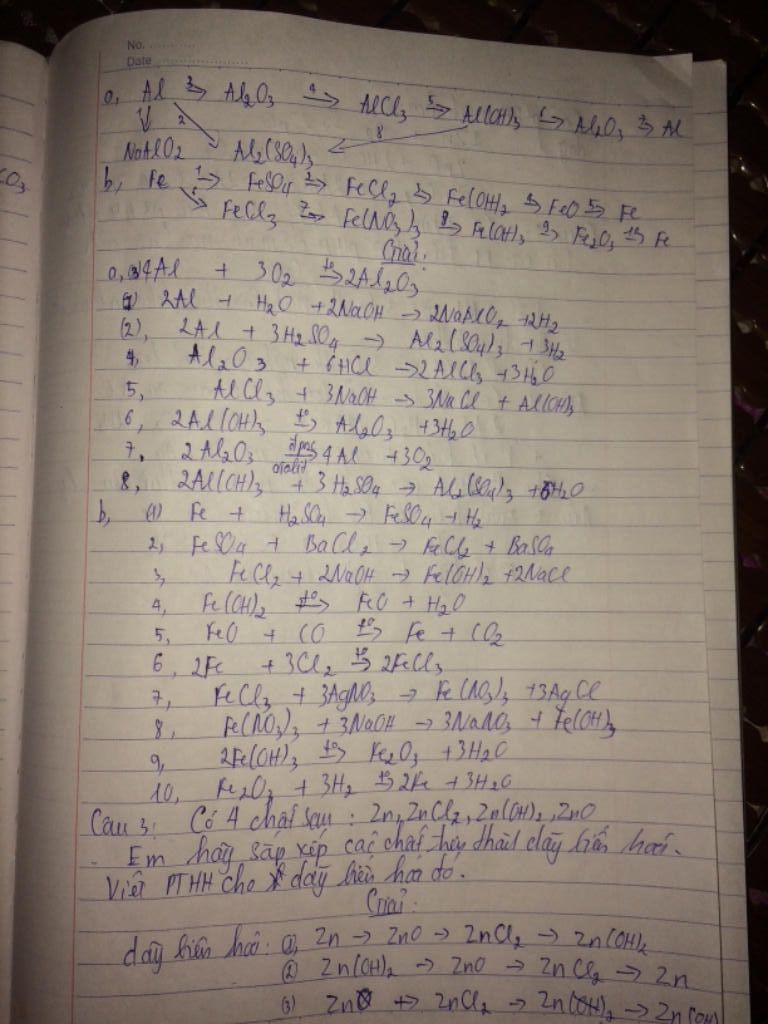 No. ............
Date ............
a, Al →³ Al₂O₃ →⁴ AlCl₃ →⁵ Al(OH)₃ →⁶ Al₂O₃ →⁷ Al
↓¹ ↘² ↙⁸
NaAlO₂ Al₂(SO₄)₃
b, Fe →¹ FeSO₄ →² FeCl₂ →³ Fe(OH)₂ →⁴ FeO →⁵ Fe
↘⁶ FeCl₃ →⁷ Fe(NO₃)₃ →⁸ Fe(OH)₃ →⁹ Fe₂O₃ →¹⁰ Fe
Giải:
a, (3) 4Al + 3O₂ →t° 2Al₂O₃
(1) 2Al + H₂O + 2NaOH → 2NaAlO₂ + 2H₂
(2), 2Al + 3H₂SO₄ → Al₂(SO₄)₃ + 3H₂
4, Al₂O₃ + 6HCl → 2AlCl₃ + 3H₂O
5, AlCl₃ + 3NaOH → 3NaCl + Al(OH)₃
6, 2Al(OH)₃ →t° Al₂O₃ + 3H₂O
7, 2Al₂O₃ →đpnc 4Al + 3O₂
8, 2Al(OH)₃ + 3H₂SO₄ → Al₂(SO₄)₃ + 6H₂O
b, (1) Fe + H₂SO₄ → FeSO₄ + H₂
2, FeSO₄ + BaCl₂ → FeCl₂ + BaSO₄
3, FeCl₂ + 2NaOH → Fe(OH)₂ + 2NaCl
4, Fe(OH)₂ →t° FeO + H₂O
5, FeO + CO →t° Fe + CO₂
6, 2Fe + 3Cl₂ →t° 2FeCl₃
7, FeCl₃ + 3AgNO₃ → Fe(NO₃)₃ + 3AgCl
8, Fe(NO₃)₃ + 3NaOH → 3NaNO₃ + Fe(OH)₃
9, 2Fe(OH)₃ →t° Fe₂O₃ + 3H₂O
10, Fe₂O₃ + 3H₂ →t° 2Fe + 3H₂O
Câu 3: Có 4 chất sau: Zn, ZnCl₂, Zn(OH)₂, ZnO
- Em hãy sắp xếp các chất dãy biến hoá.
Viết PTHH cho dãy biến hoá đó.
Giải:
dãy biến hoá: (1), Zn → ZnO → ZnCl₂ → Zn(OH)₂
(2) Zn(OH)₂ → ZnO → ZnCl₂ → Zn
(3) Zn → ZnCl₂ → Zn(OH)₂ → Zn(OH)